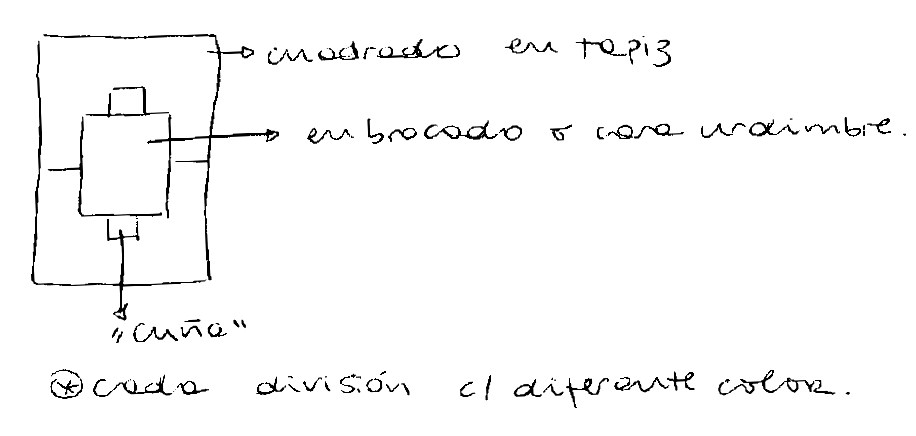 cuadrado en tapiz
en brocado o cara urdimbre.
"cuña"
* cada división c/ diferente color.